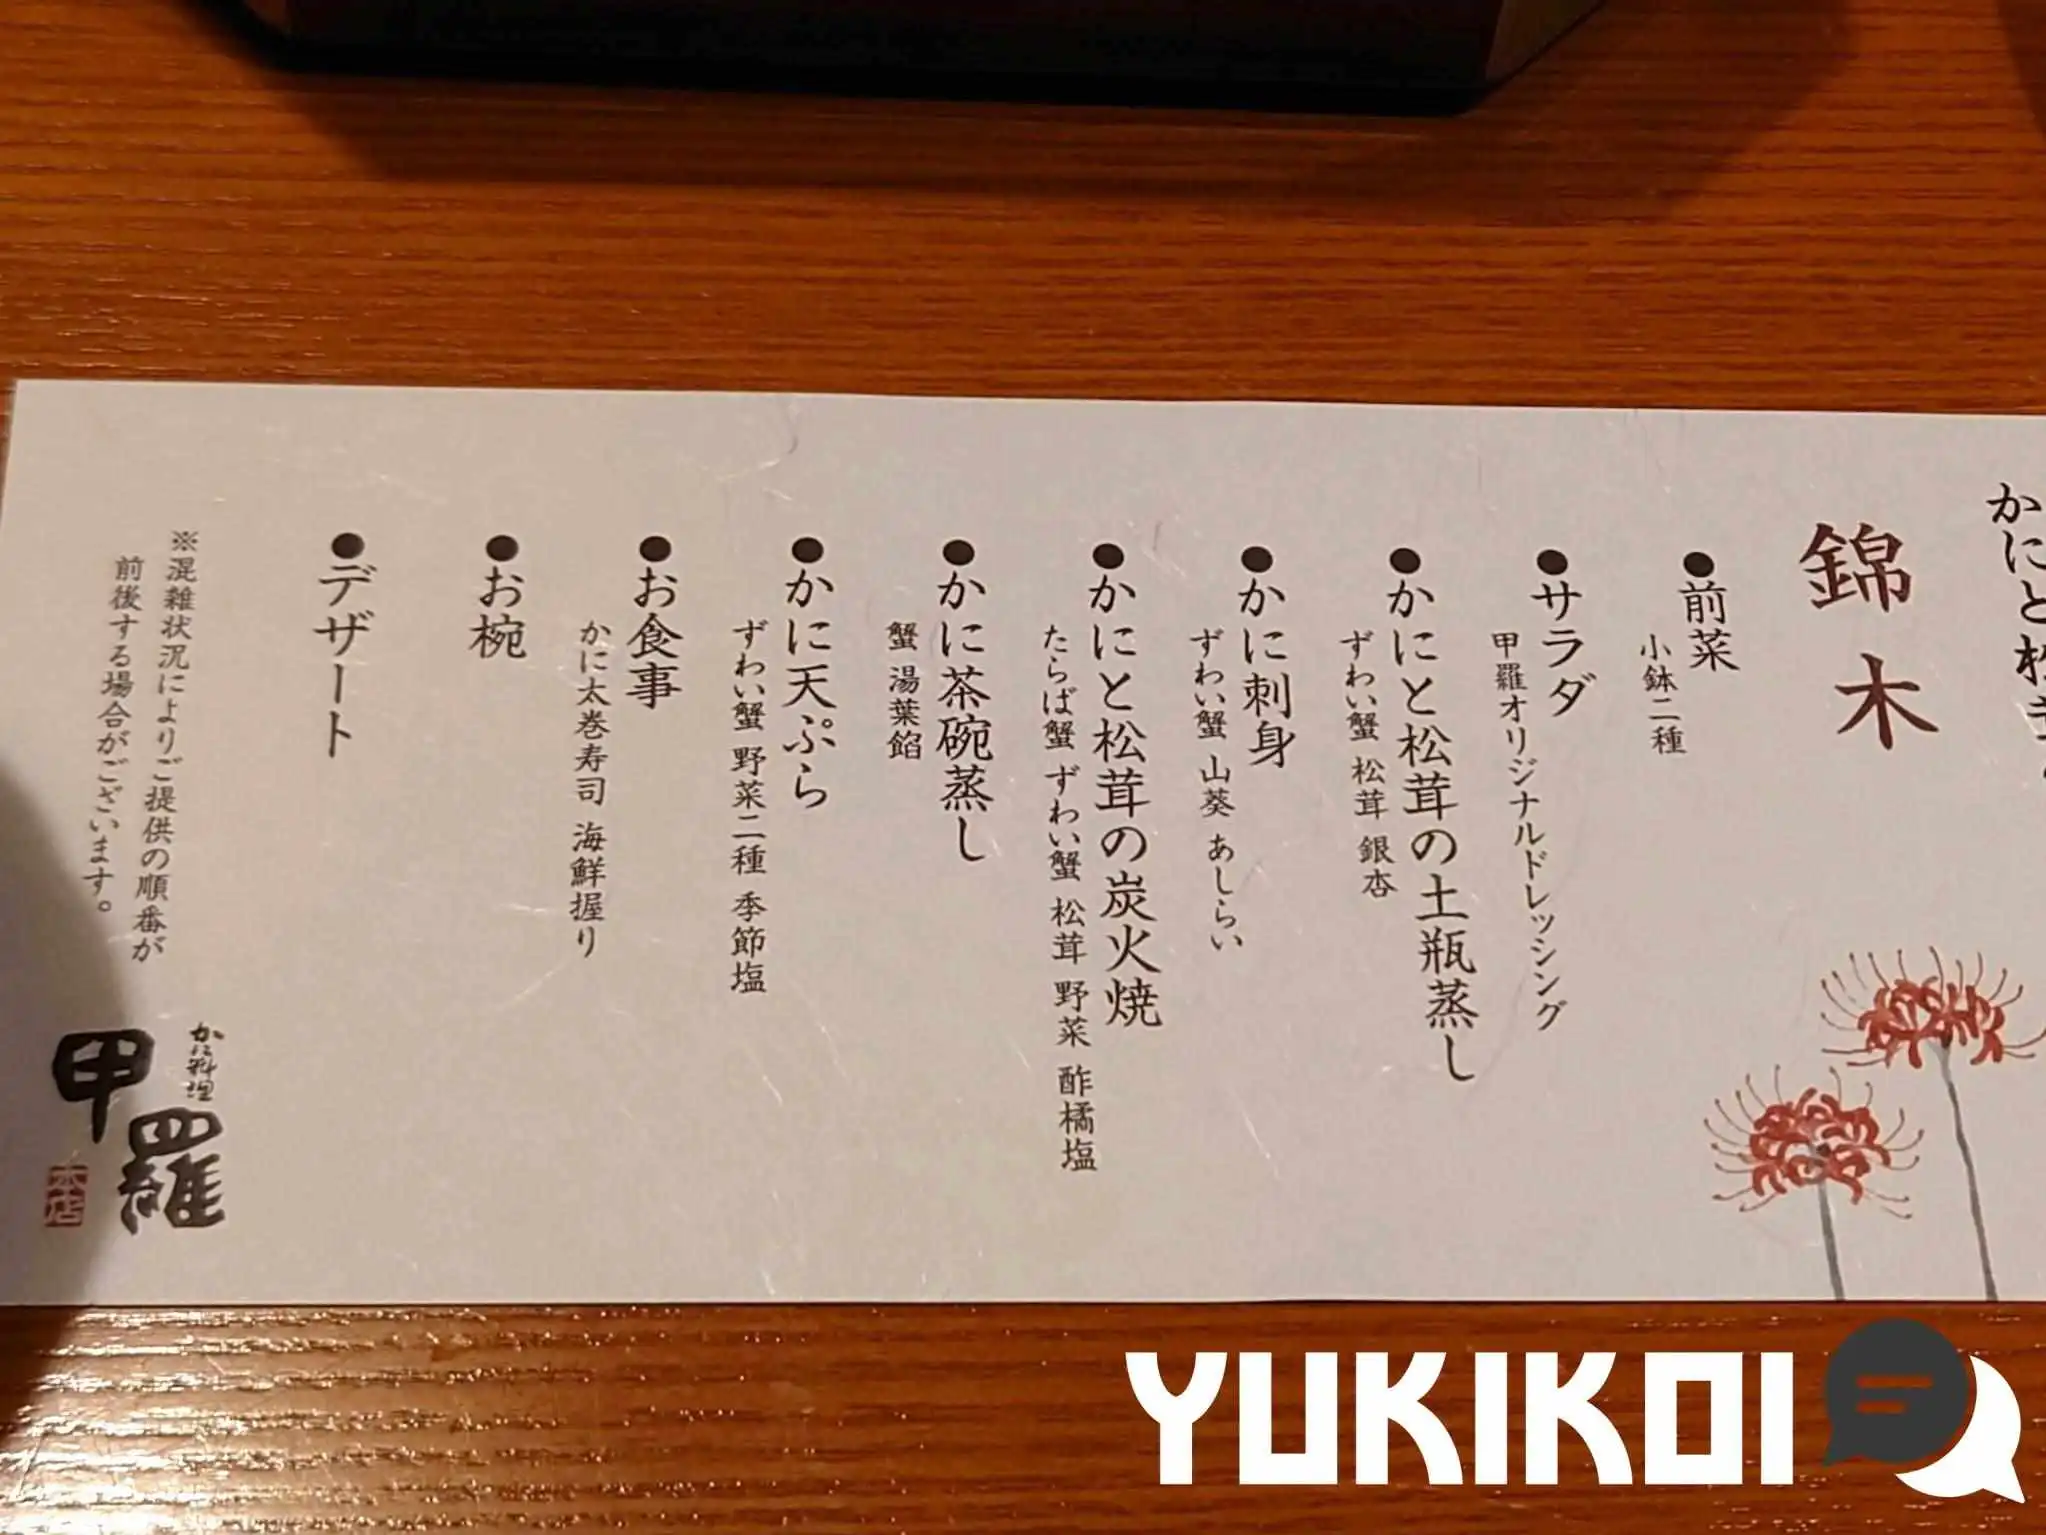 かにと松
錦木
●前菜
小鉢二種
●サラダ
甲羅オリジナルドレッシング
●かにと松茸の土瓶蒸し
ずわい蟹 松茸 銀杏
●かに刺身
ずわい蟹 山葵 あしらい
●かにと松茸の炭火焼
たらば蟹 ずわい蟹 松茸 野菜 酢橘塩
●かに茶碗蒸し
蟹 湯葉餡
●かに天ぷら
ずわい蟹 野菜二種 季節塩
●お食事
かに太巻寿司 海鮮握り
●お椀
●デザート
※混雑状況によりご提供の順番が
前後する場合がございます。
かに料理
甲羅
本店
YUKIKOI